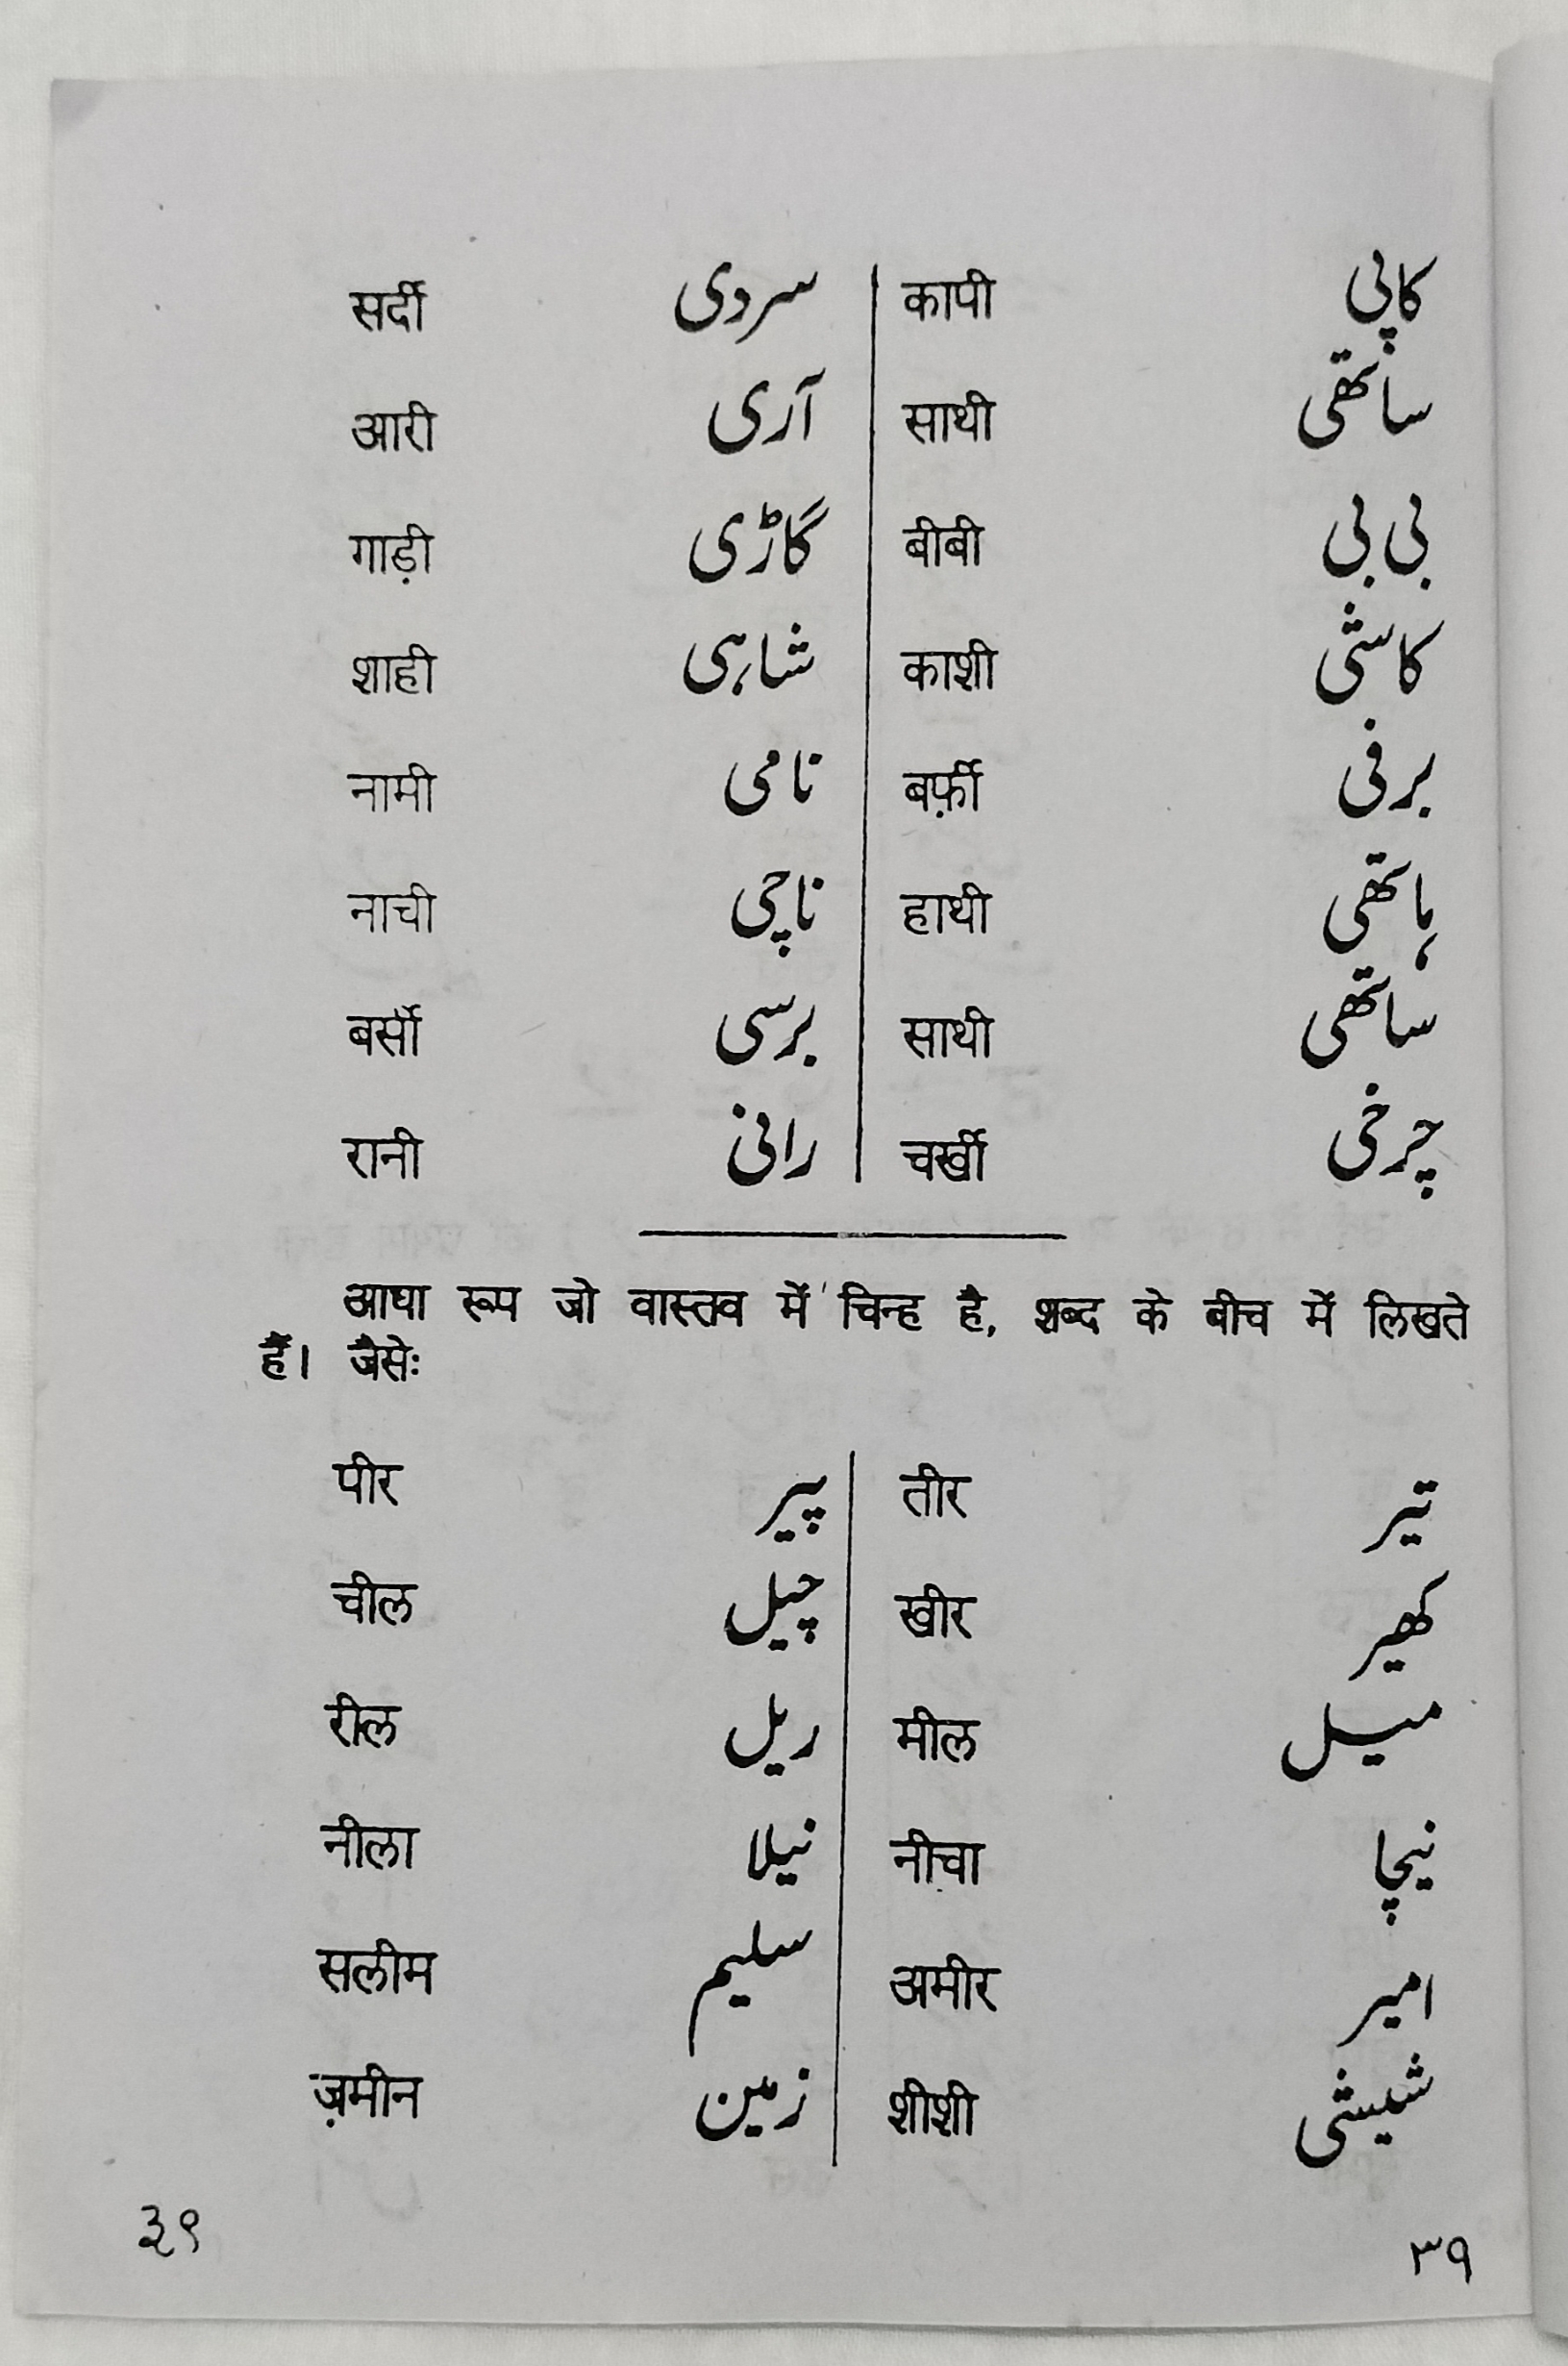 सर्दी سردی कापी کاپی
आरी آری साथी ساتھی
गाड़ी گاڑی बीबी بی بی
शाही شاہی काशी کاشی
नामी نامی बर्फ़ी برفی
नाची ناچی हाथी ہاتھی
बर्सी برسی साथी ساتھی
रानी رانی चर्खी چرخی
आधा रूप जो वास्तव में चिन्ह है, शब्द के बीच में लिखते
हैं। जैसेः
पीर پیر तीर تیر
चील چیل खीर کھیر
रील ریل मील میل
नीला نیلا नीचा نیچا
सलीम سلیم अमीर امیر
ज़मीन زمین शीशी شیشی
३९ ۳۹